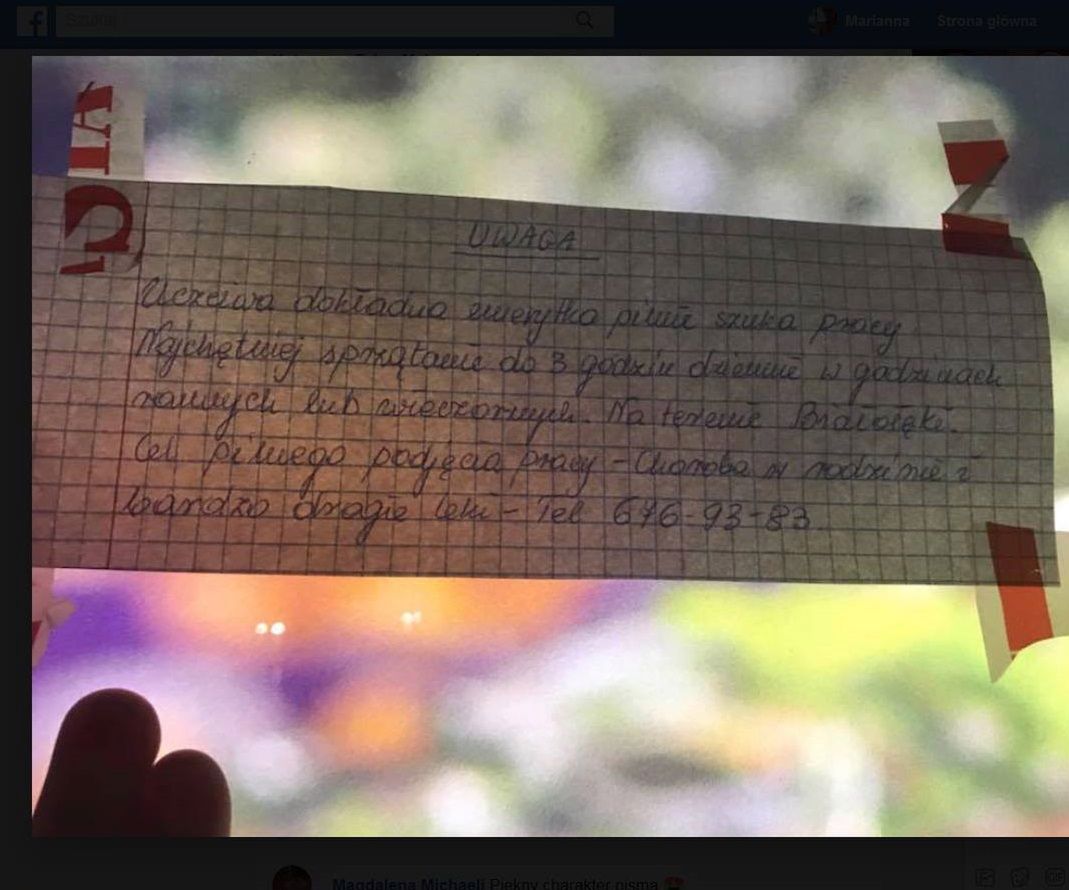 Szukaj
Marianna
Strona główna
UWAGA
Uczciwa dokładna emerytka pilnie szuka pracy
Najchętniej sprzątanie do 3 godzin dziennie w godzinach
rannych lub wieczornych. Na terenie Białołęki.
Cel pilnego podjęcia pracy - Choroba w rodzinie i
bardzo drogie leki - Tel 676-93-83
Magdalena Michaeli Piękny charakter pisma